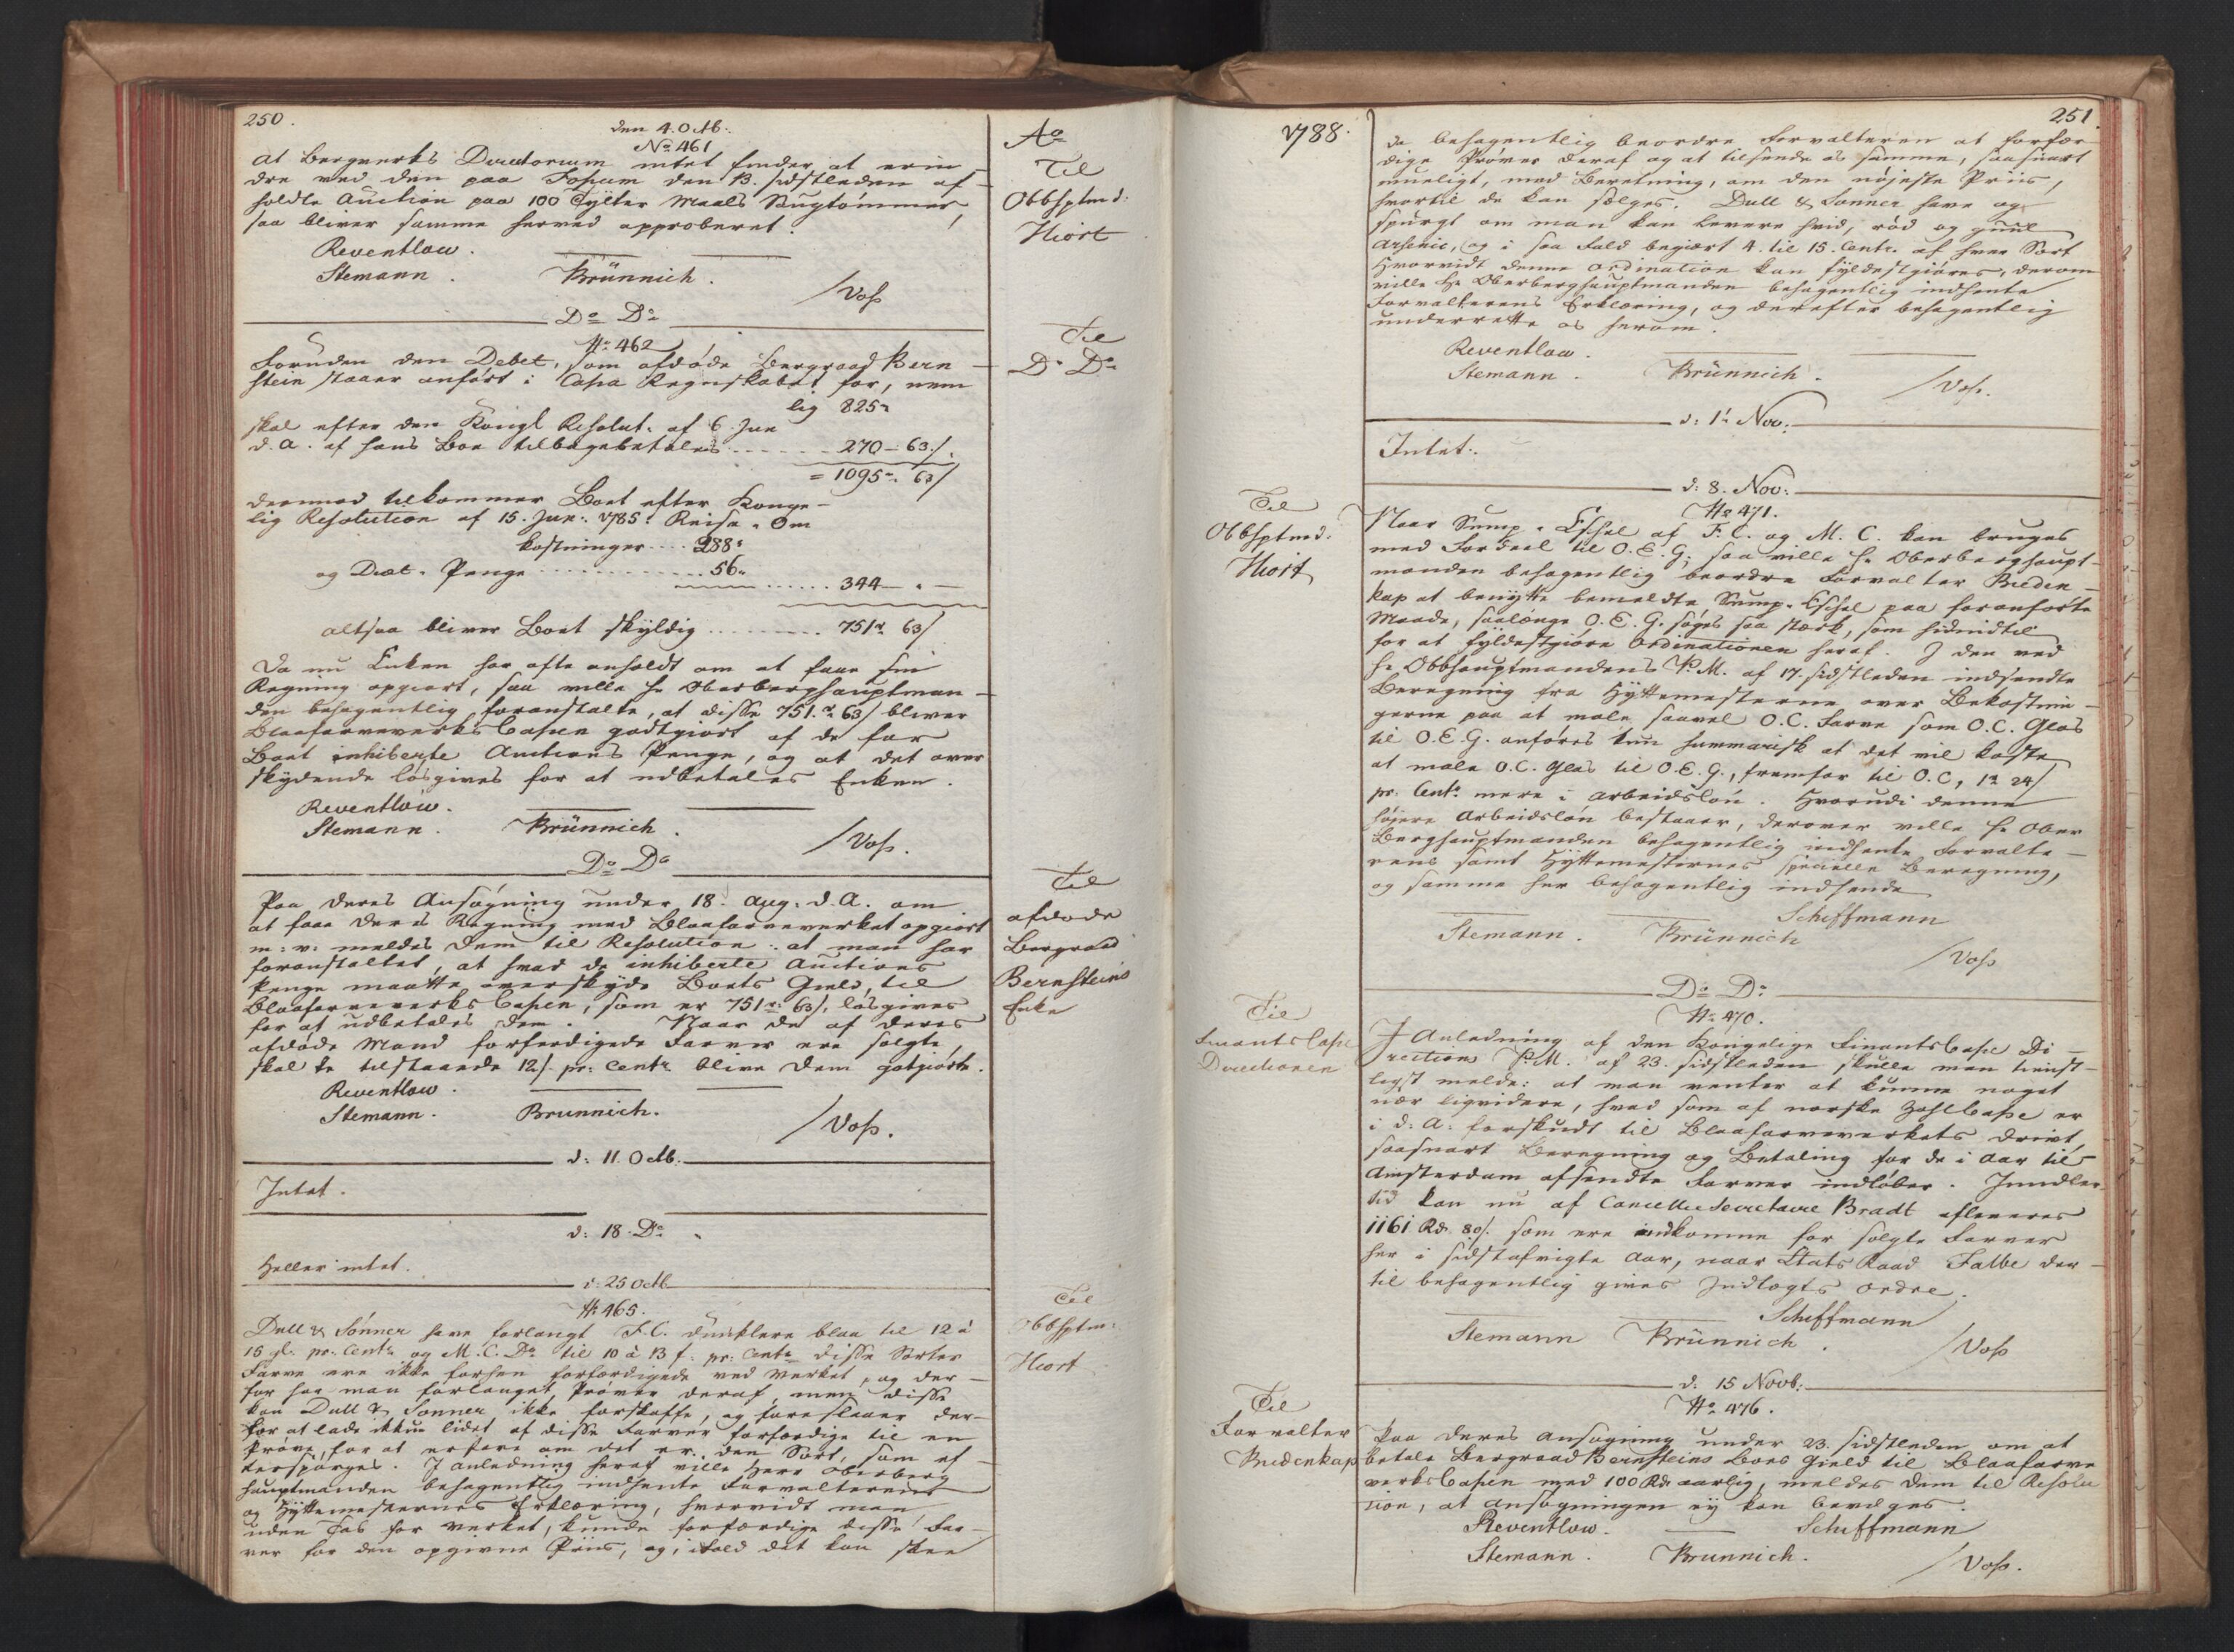 250.
den 4. Octb:
No 461
At Bergverks Directorium intet finder at erin-
dre ved den paa Foßum den 13. sidstleden af-
holdte Auction paa 100 Tylter Maals Sugtømmer,
saa bliver samme herved approberet.
Reventlow.
Stemann. Brünnich.
/Voß
Ao
Til
Obbhptmd:
Hiort
Do Do
No 462
Foruden den Debet, som afdøde Bergraad Bern-
stein staaer anført i Cassa Regnskabet for, nem
lig 825
skal efter den Kongl Resolut. af 6. Jun
d. A. af hans Boe tilbagebetales 270 - 63/.
= 1095. 63/
Til
Do Do
derimod tilkommer Boet efter Konge-
lig Resolution af 15. Jun. 1785. Reise-Om
kostninger 288
og Diæt-Penge 56
344
altsaa bliver Boet skyldig 751 63/
Da nu Enken har ofte anholdt om at faae sin
Regning opgiort, saa ville Hr Oberberghauptman-
den behagentlig foranstalte, at disse 751. 63/ bliver
Blaafarveverks Cassen godtgiort af de for
Boet inhiberte Auctions Penge, og at det over
skydende løsgives for at udbetales Enken.
Reventlow.
Stemann. Brünnich.
/Voß.
Do Do
Paa Deres Ansøgning under 18. Aug. d. A. om
at faae Deres Regning med Blaafarveverket opgiort
m: v: meldes Dem til Resolution: at man har
foranstaltet, at hvad de inhiberte Auctions
Penge maatte overskyde Boets Gield til
Blaafarveverks Cassen, som er 751 63/, løsgives
for at udbetales Dem. Naar de af Deres
afdøde Mand forfærdigede Farver ere solgte,
skal de tilstaaede 12/ pr: Centr. blive Dem godtgiorte.
Reventlow.
Stemann. Brunnich.
/Voß.
Til
afdøde
Bergraad
Bernsteins
Enke
d: 11. Octb:
Intet.
d: 18. Do
Heller intet.
d: 25 Octb
No 465.
Dull & Sønner have forlangt F.C. dunklere blaa til 12 à
15 gl. pr: Centr og M.C. Do til 10 à 13 f. pr: Centr disse Sorter
Farve ere ikke forhen forfærdigede ved Verket, og der-
for har man forlanget Prøver deraf, men disse
kan Dull & Sønner ikke forskaffe, og foreslaaer der-
for at lade ikkun lidet af disse Farver forfærdige til en
Prøve, for at erfare om det er den Sort, som ef-
terspørges. I Anledning heraf ville Herr Oberberg
hauptmanden behagentlig indhente Forvalterens
og Hyttemesternes Erklæring, hvorvidt man
uden Tab for Verket, kunde forfærdige disse Far-
ver for den opgivne Priis, og, ifald det kan skee
Til
Obbhptm:
Hiort
1788.
251.
da behagentlig beordre Forvalteren at forfær-
dige Prøver deraf og at tilsende os samme, saasnart
mueligt, med Beretning, om den nøjeste Priis,
hvortil de kan sælges. Dull & Sønner have og
spurgt om man kan levere hvid, rød og guul
Arsenic, og i saa Fald begiært 4. til 15. Centr. af hver Sort
Hvorvidt denne Ordination kan fyldestgiøres, derom
ville Hr Oberberghauptmanden behagentlig indhente
Forvalterens Erklæring, og derefter behagentlig
underrette os herom.
Reventlow.
Stemann. Brünnich.
/Voß.
d: 1' Nov:
Intet.
d: 8. Nov:
No 471.
Til
Obbhptmd:
Hiort
Naar Sump-Eschel af F.C. og M.C. kan bruges
med Fordeel til O.E.G; saa ville Hr Oberberghaupt-
manden behagentlig beordre Forvalter Breden-
kap at benytte bemeldte Sump-Eschel paa foranførte
Maade, saalænge O.E.G. søges saa stærk, som hidindtil
for at fyldestgiøre Ordinationen heraf. I den ved
Hr Obbhauptmandens P.M. af 17. sidstleden indsendte
Beregning fra Hyttemesterne over Bekostnin-
gerne paa at male saavel O.C. Farve som O.C. Glas
til O.E.G. anføres kun summarisk at det vil koste
at male O.C. Glas til O.E.G., fremfor til O.C, 1 24/
pr: Centr. mere i Arbeidsløn. Hvorudi denne
højere Arbeidsløn bestaaer, derover ville Hr Ober
Berghauptmanden behagentlig indhente Forvalte-
rens samt Hyttemesternes specielle Beregning,
og samme her behagentlig indsende
Schiffmann
Stemann. Brünnich
/Voß
Do Do
No 470.
Til
Finants Casse
Directionen
I Anledning af den Kongelige Finants Casse Di-
rections P.M. af 23. sidstleden skulle man tienst-
ligst melde: at man venter at kunne noget
nær liqvidere, hvad som af norske Zahl Casse er
i d: A: forskudt til Blaafarveverkets Drivt,
saasnart Beregning og Betaling for de i Aar til
Amsterdam afsendte Farver indløber. Imidler-
tid kan nu af Cancellie Secretaire Bradt afleveres
1161 Rd. 80/. som ere indkomne for solgte Farver
her i sidstafvigte Aar, naar Etats Raad Falbe der-
til behagentlig gives Indtægts Ordre.
Schiffmann
Stemann Brünnich.
/Voß
d: 15 Novb:
No 476.
Til
Forvalter
Bredenkap
Paa Deres Ansøgning under 23. sidstleden om at
betale Bergraad Bernsteins Boes Gield til Blaafarve
verks Cassen med 100 Rd. aarlig, meldes Dem til Resolu
tion, at Ansøgningen ey kan bevilges.
Reventlow. Schiffmann
Stemann. Brunnich.
/Voß.